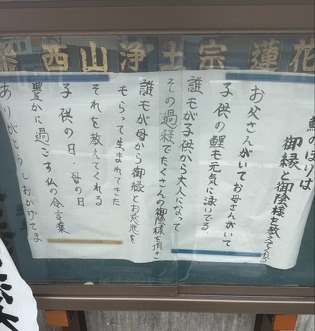 西山浄土宗 蓮花
鯉のぼりは
御縁と御陰様を教えてくれる
お父さんがいてお母さんがいて
子供の鯉も元気に泳いでる
誰もが子供から大人になって
その過程でたくさんの御陰様を頂き
誰もが母から御縁とお慈悲を
もらって生まれてきた
それを教えてくれる
子供の日、母の日
豊かに過ごす仏の合言葉
ありがとうとおかげさま